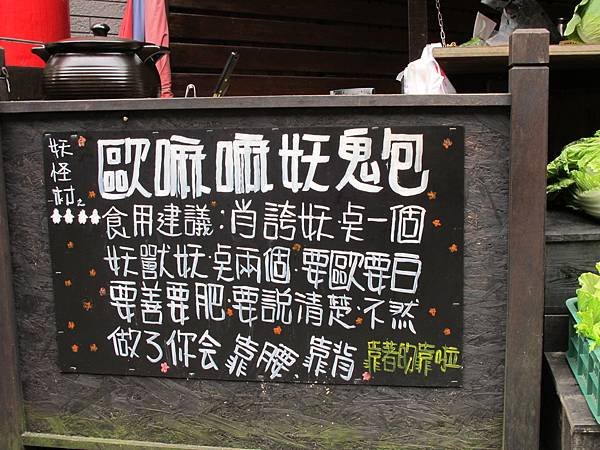 妖怪村
歐嘛嘛妖鬼包
食用建議:肖誇妖桌一個
妖獸妖桌兩個·要歐要白
要善要肥·要說清楚·不然
做了你会 靠腰 靠背 靠著的靠啦